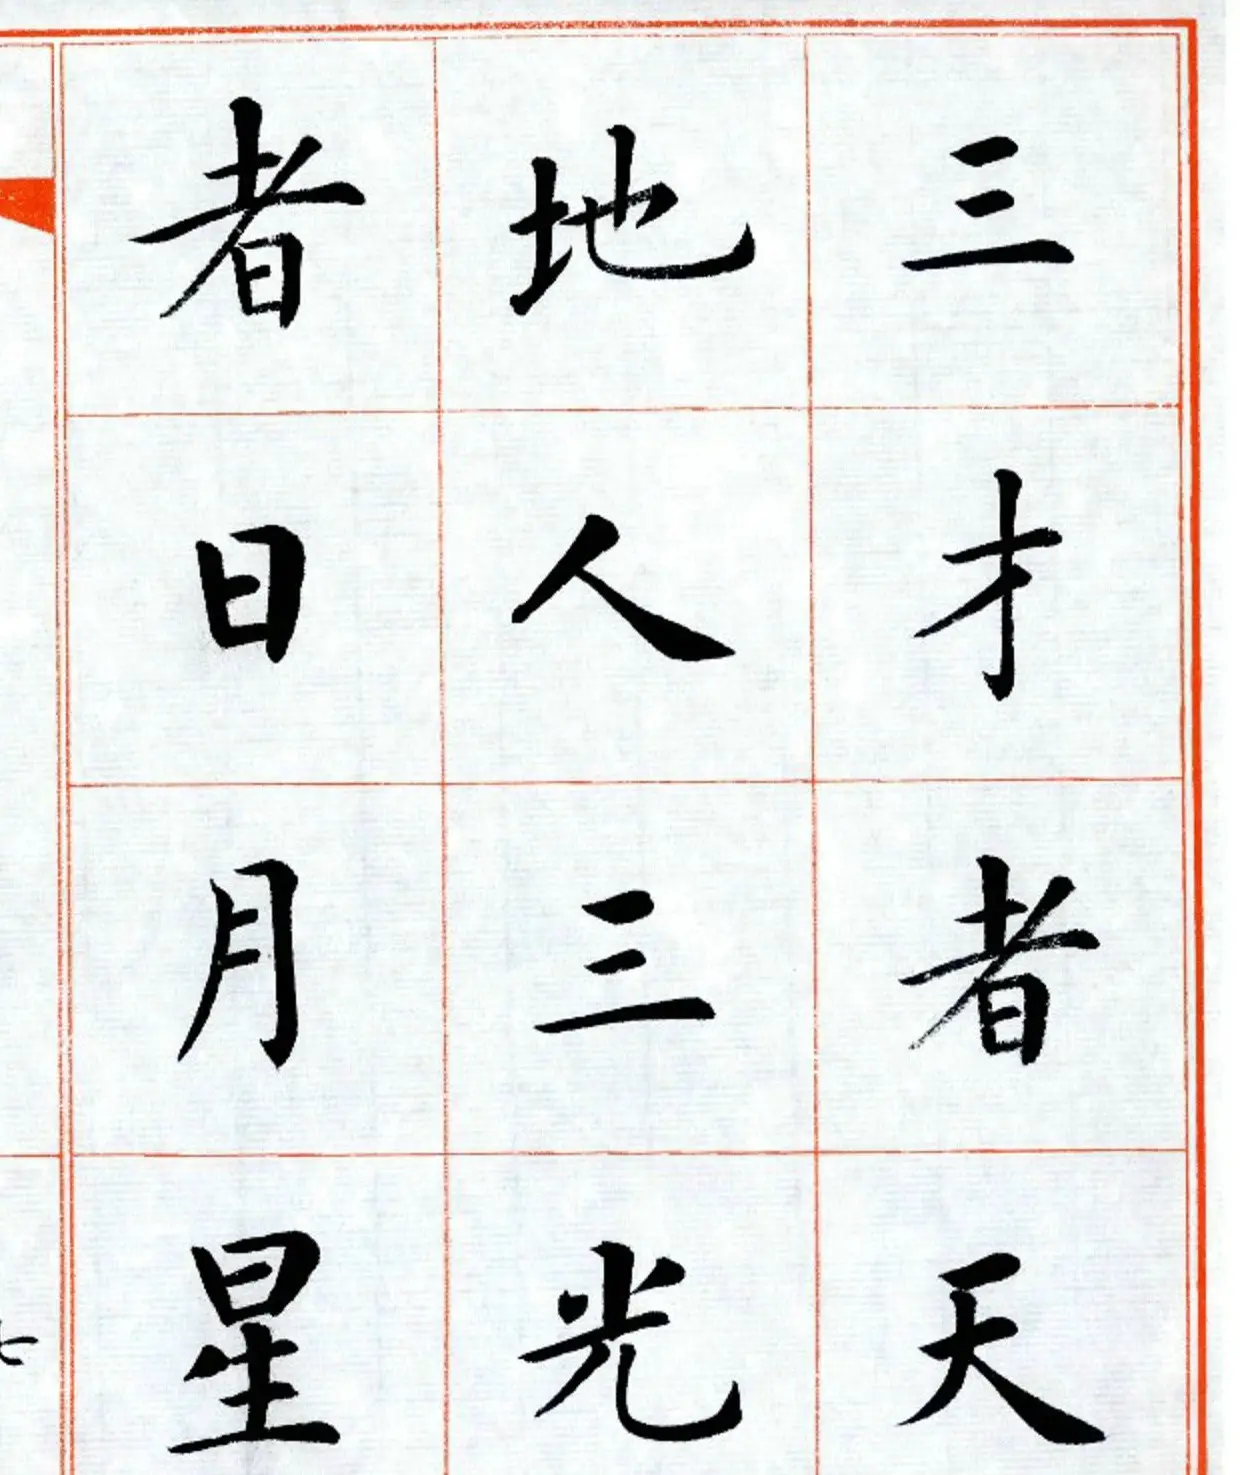 三才者天
地人三光
者日月星